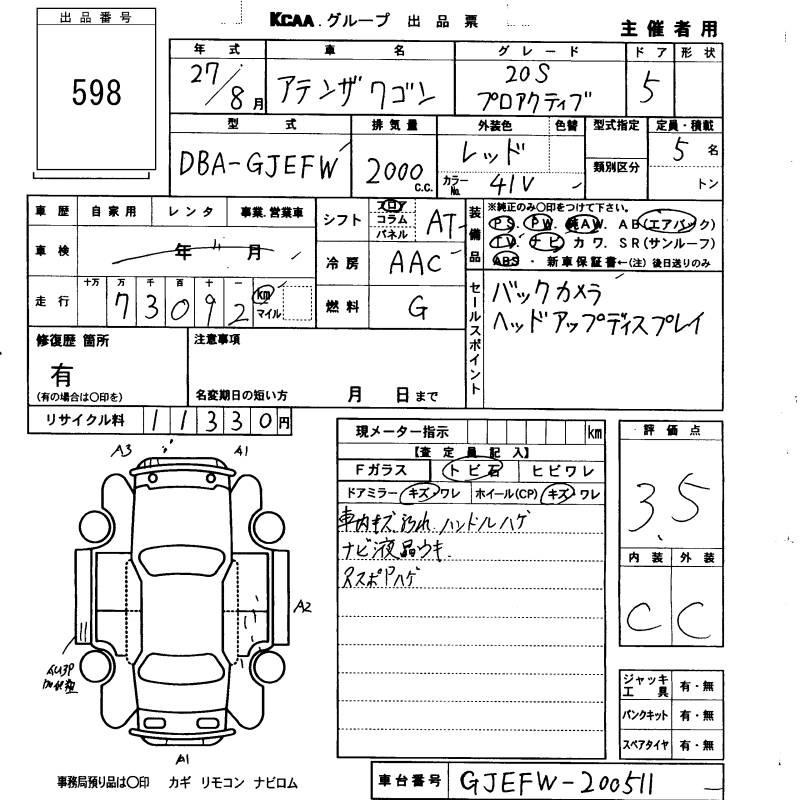 出品番号
598
KCAA.グループ 出品票
主催者用
年式 車名 グレード ドア 形状
27/8月 アテンザワゴン 20S プロアクティブ 5
型式 排気量 外装色 色替 型式指定 定員・積載
DBA-GJEFW 2000 C.C. レッド 5名
カラーNo. 41V 類別区分 トン
車歴 自家用 レンタ 事業.営業車
シフト フロア コラム パネル AT
車検 年 月
冷房 AAC
走行 十万 万 千 百 十 一
73092 km マイル
燃料 G
装備品 ※純正のみ〇印をつけて下さい。
PS. PW. 純AW. AB(エアバック)
TV. ナビ カワ. SR(サンルーフ)
ABS ・ 新車保証書←(注) 後日送りのみ
セールスポイント
バックカメラ
ヘッドアップディスプレイ
修復歴 箇所
有
(有の場合は〇印を)
注意事項
名変期日の短い方 月 日まで
リサイクル料 11330円
現メーター指示 km
【査定員記入】
Fガラス トビ石 ヒビワレ
ドアミラー キズ・ワレ ホイール(CP) キズ・ワレ
車内キズ 汚れ ハンドルハゲ
ナビ液晶ウキ
ススポPハゲ
評価点
3.5
内装 外装
C C
A3 A1
A2
A1
ジャッキ工具 有・無
パンクキット 有・無
スペアタイヤ 有・無
事務局預り品は〇印 カギ リモコン ナビロム
車台番号 GJEFW-200511